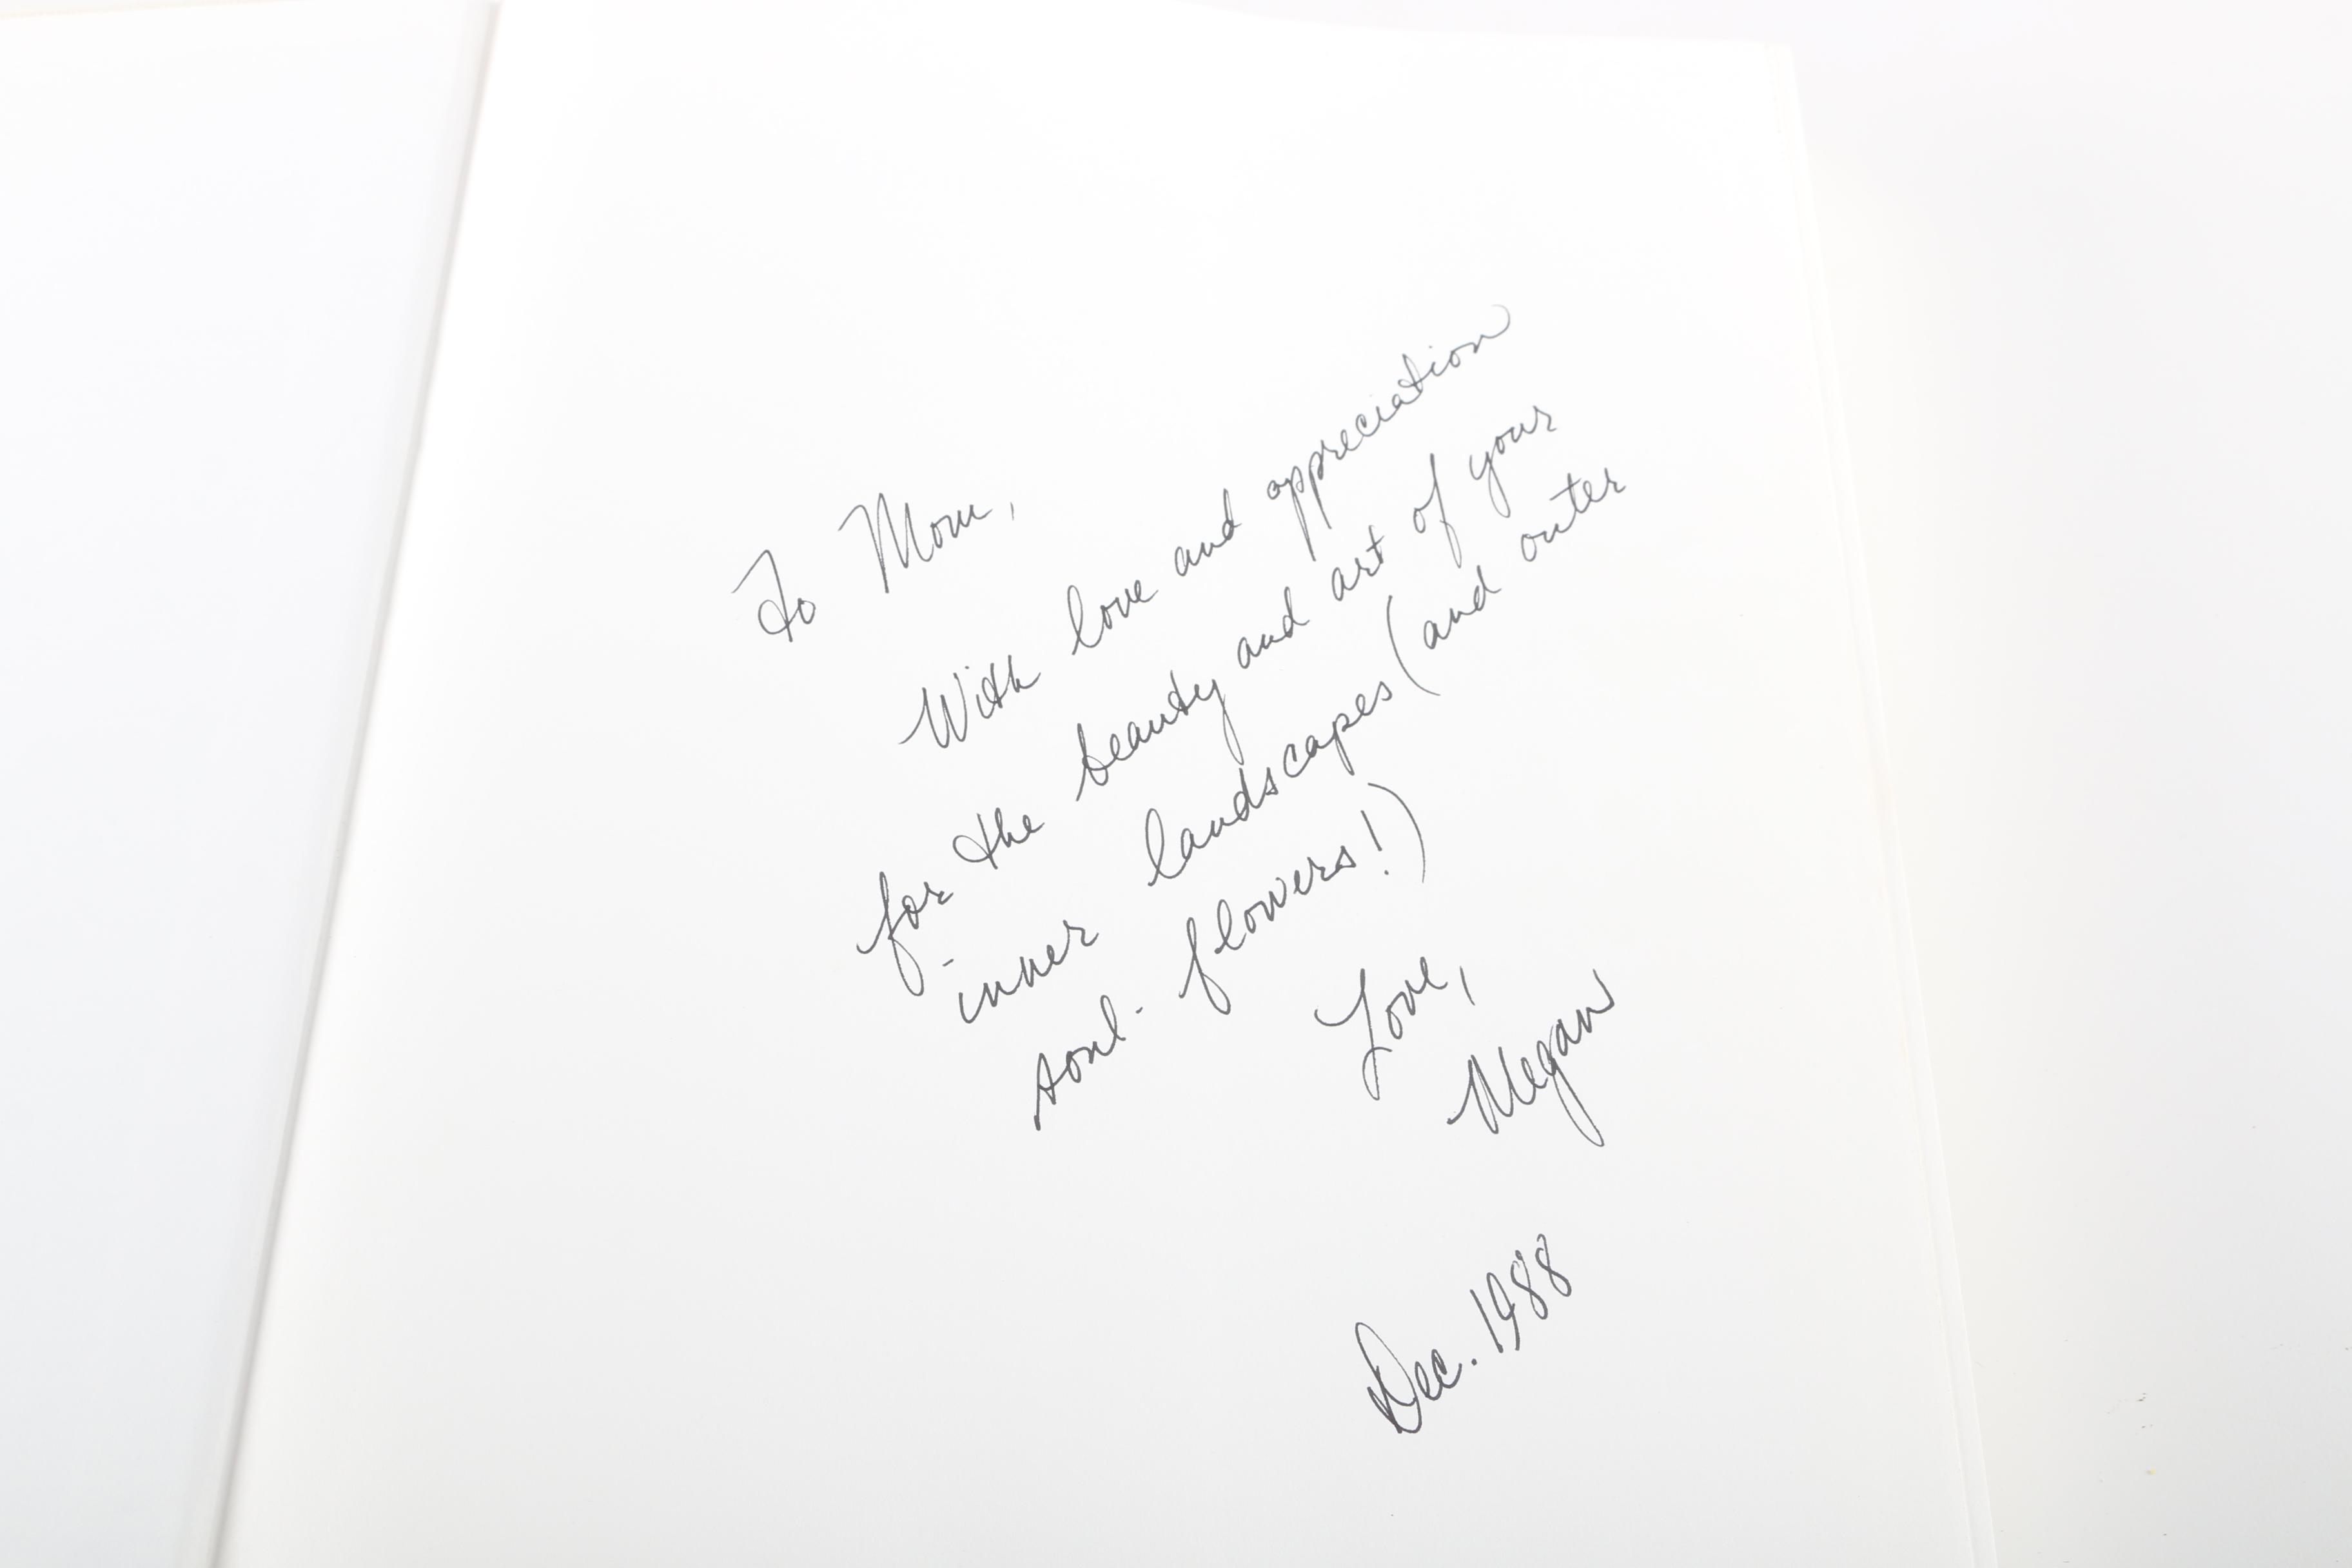 To Mom,
With love and appreciation
for the beauty and art of your
inner landscapes (and outer
soul-flowers!)
Love,
Megan
Dec. 1988